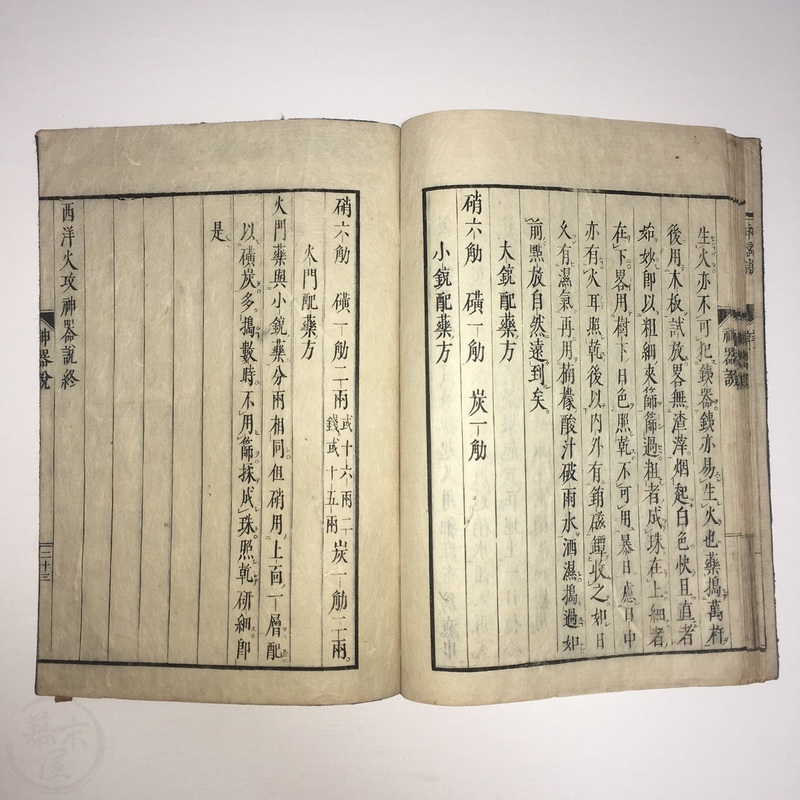 生火亦不可犯鐵器鐵亦易生火也藥搗萬杵
後用木板試放畧無渣滓烟起白色快且直者
始妙即以粗細夾篩篩過粗者成珠在上細者
在下畧用樹下日色照乾不可用暴日慮日中
亦有火耳照乾後以內外有銷磁罈收之如日
久有濕氣再用楠檬酸汁破雨水洒濕搗過如
前點放自然遠到矣
大銃配藥方
硝六觔 磺一觔 炭一觔
小銃配藥方
硝六觔 磺一觔二兩 或十六兩二錢或十五兩 炭一觔二兩
火門配藥方
火門藥與小銃藥分兩相同但硝用上面一層配
以磺炭多搗數時不用篩採成珠照乾研細即
是
西洋火攻神器說終
神器說
二十三
神器說
幕末屋